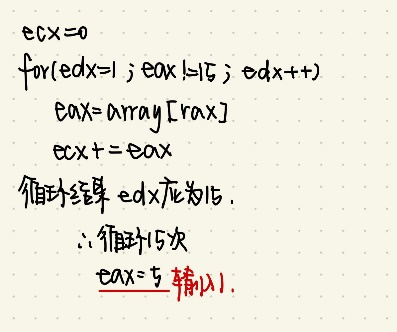 ecx=0
for(edx=1 ; eax!=15 ; edx++)
eax=array[rax]
ecx+=eax
循环结果 edx应为15.
∴循环15次
eax=5 输入1.